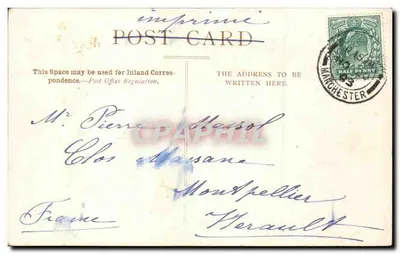 imprimé
POST CARD
This Space may be used for Inland Corres-
pondence.—Post Office Regulation.
THE ADDRESS TO BE
WRITTEN HERE.
HALF PENNY
MANCHESTER
Mr Pierre Massol
Clos Massane
Montpellier
Herault
France